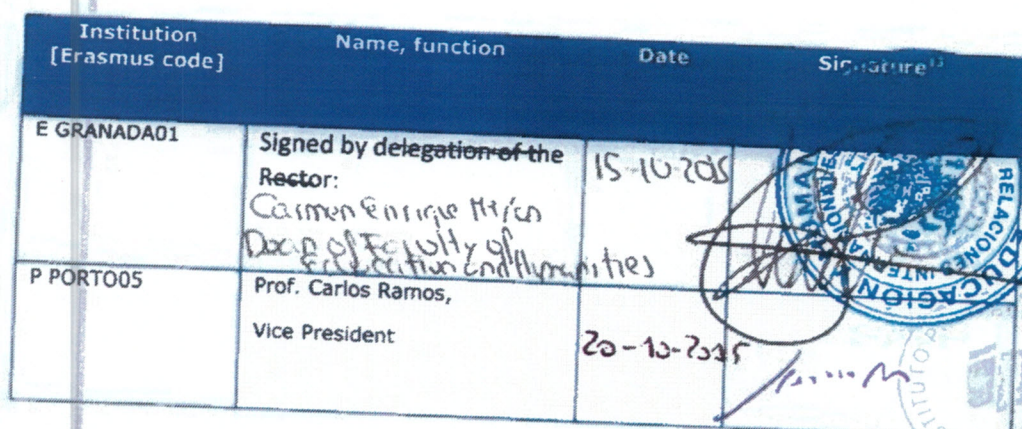 Institution
[Erasmus code]
Name, function
Date
Signature¹³
E GRANADA01
Signed by delegation of the
Rector:
Carmen Enrique
Dean of Faculty of
Education and Humanities
15-10-2015
EDUCACIÓN
RELACIONES INTERNACIONALES
P PORTO05
Prof. Carlos Ramos,
Vice President
20-10-2015